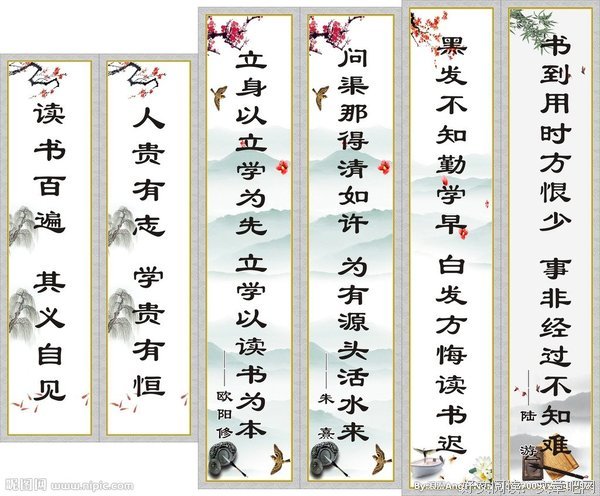 读书百遍 其义自见
人贵有志 学贵有恒
立身以立学为先 立学以读书为本
——欧阳修
问渠那得清如许 为有源头活水来
——朱熹
黑发不知勤学早 白发方悔读书迟
书到用时方恨少 事非经过不知难
——陆游
昵图网 www.nipic.com